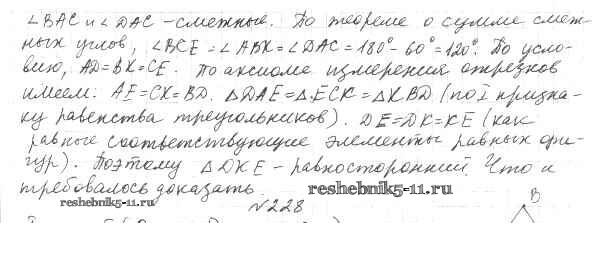 ∠BAC и ∠DAC - смежные. По теореме о сумме смеж-
ных углов, ∠BCE = ∠ABK = ∠DAC = 180° - 60° = 120°. По усло-
вию, AD = BK = CE. По аксиоме измерения отрезков
имеем: AE = CK = BD. △DAE = △ECK = △KBD (по I призна-
ку равенства треугольников). DE = DK = KE (как
равные соответствующие элементы равных фи-
гур). Поэтому △DKE - равносторонний. Что и
требовалось доказать.
reshebnik5-11.ru
reshebnik5-11.ru
№228
B